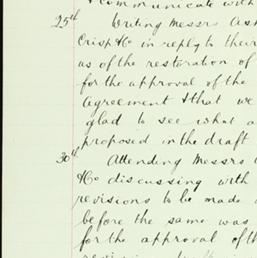 & communicate with
25th Writing Messrs Ash
Crisp & Co in reply to their
as of the restoration of
for the approval of the
Agreement & that we
glad to see what a
proposed in the draft
30th Attending Messrs
& Co discussing with
revisions to be made
before the same was
for the approval of th